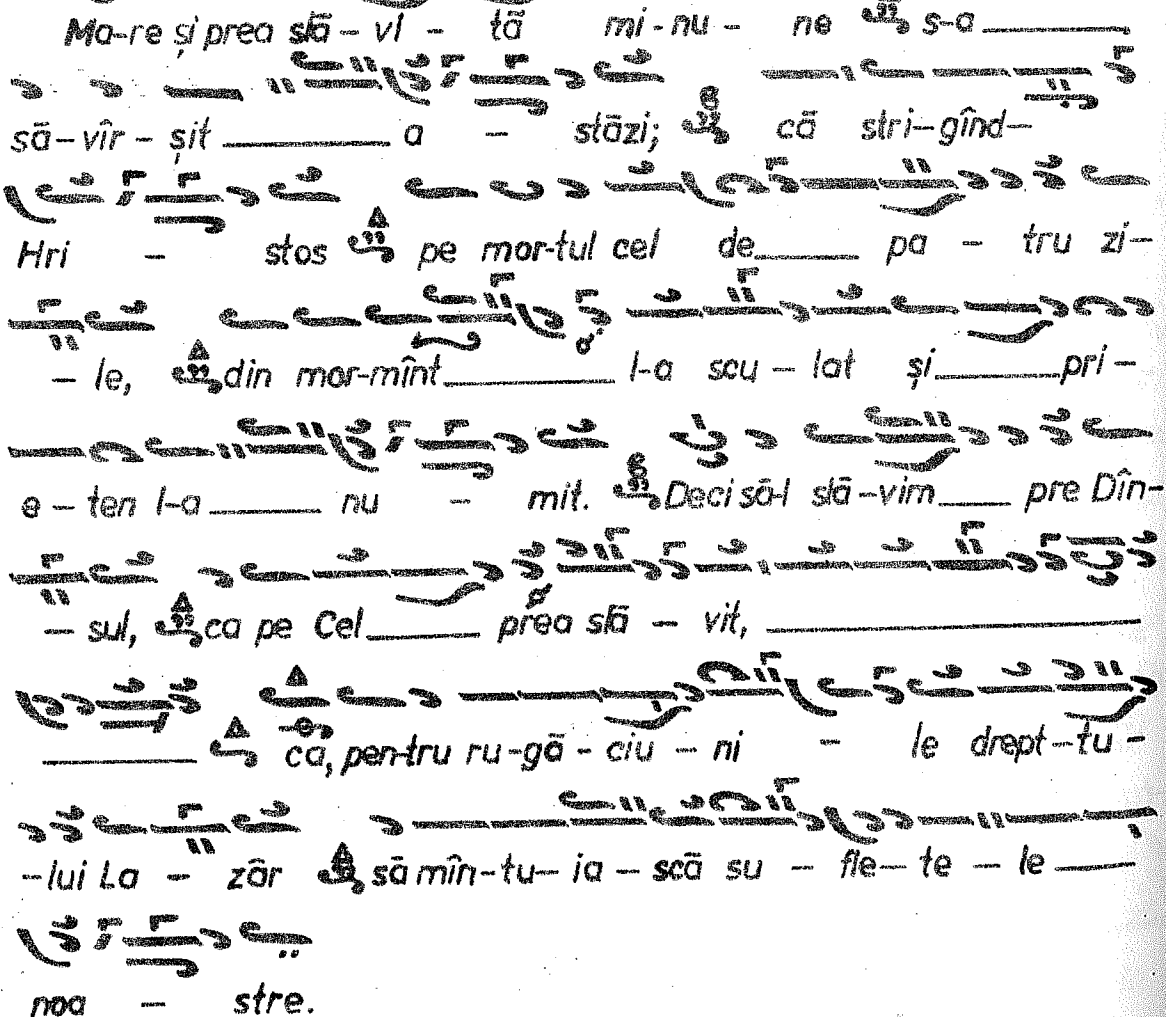 Ma-re și prea slă - vi - tă mi - nu - ne s-a
să-vîr-șit a - stăzi; că stri-gînd-
Hri - stos pe mor-tul cel de pa - tru zi-
- le, din mor-mînt l-a scu - lat și pri -
e - ten l-a nu - mit. Deci să-l slă-vim pre Dîn-
- sul, ca pe Cel prea slă - vit,
ca, pen-tru ru-gă - ciu - ni - le drept-tu -
-lui La - zăr să mîn-tu- ia - scă su - fle- te - le
noa - stre.